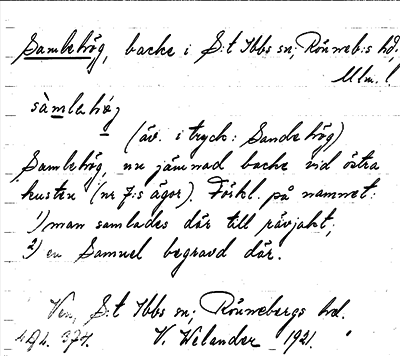 Samlehög, backe i S:t Ibbs sn; Rönneb:s hd,
Mlm. l.
sàmlahǿg
(äv. i tryck: Sande hög)
Samlehög, nu jämnad backe vid östra
kusten (nr 7:s ägor). Förkl. på namnet:
1) man samlades där till rävjakt;
2) en Samuel begravd där.
Ven, S:t Ibbs sn; Rönnebergs hd.
V. Welander 1921.